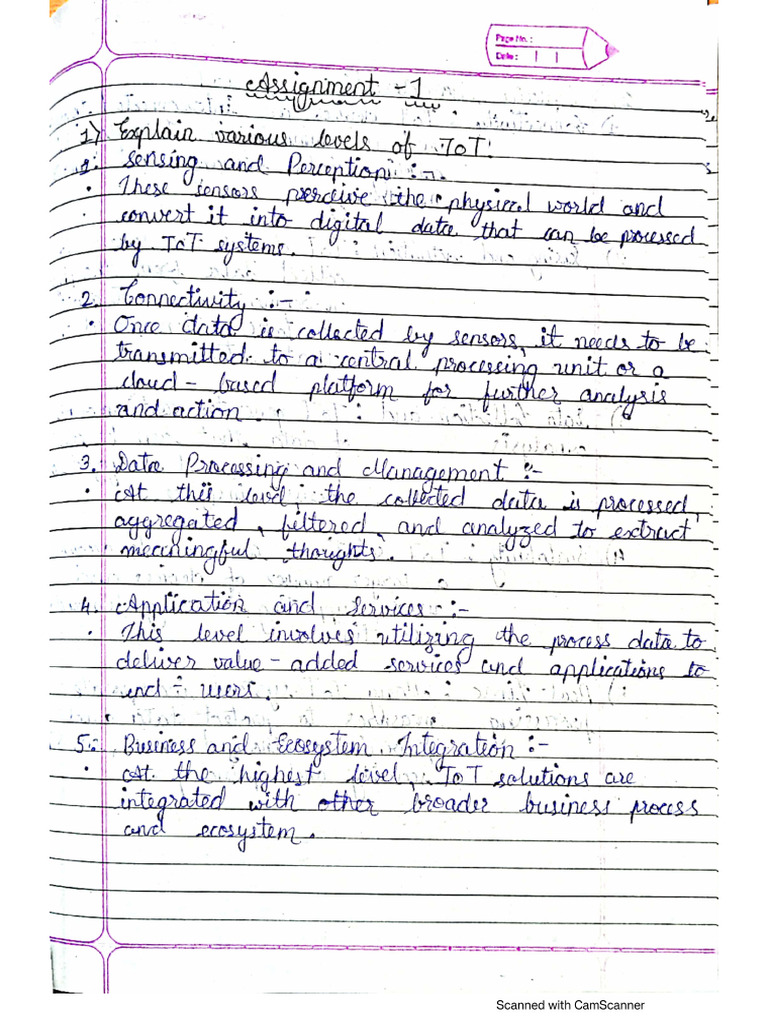 Page No.:
Date:
Assignment - 1
1) Explain various levels of IoT.
1. Sensing and Perception :-
• These sensors perceive the physical world and
convert it into digital data that can be processed
by IoT systems.
2. Connectivity :-
• Once data is collected by sensors, it needs to be
transmitted to a central processing unit or a
cloud - based platform for further analysis
and action.
3. Data Processing and Management :-
• At this level, the collected data is processed,
aggregated, filtered, and analyzed to extract
meaningful thoughts.
4. Application and Services :-
• This level involves utilizing the process data to
deliver value - added services and applications to
end - users.
5. Business and Ecosystem Integration :-
• At the highest level, IoT solutions are
integrated with other broader business process
and ecosystem.
Scanned with CamScanner